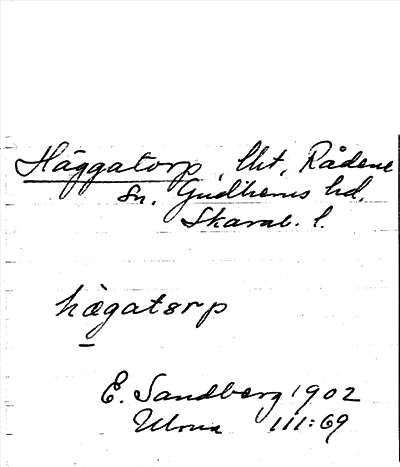 Häggatorp, lht, Rådene
sn. Gudhems hd.
Skarab. l.
hægatɔrp
E. Sandberg 1902
111:69